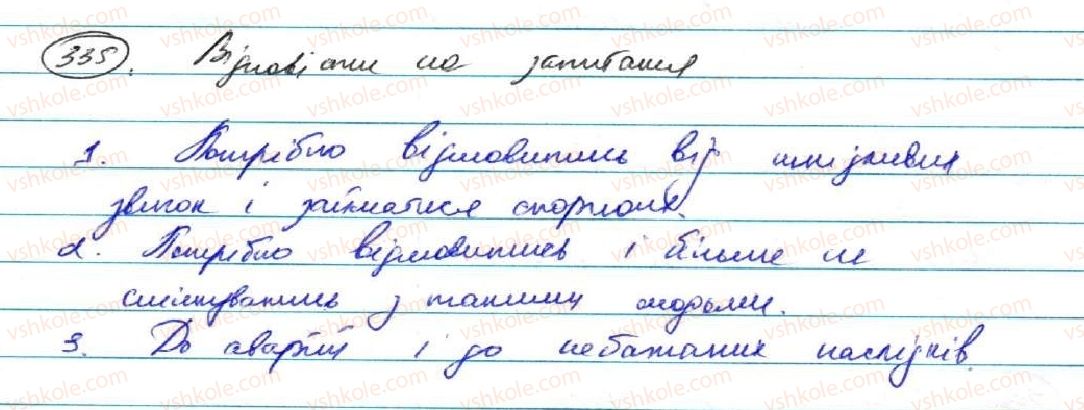 335. Відповісти на запитання
1. Потрібно відмовитись від шкідливих
звичок і займатися спортом.
2. Потрібно відмовитись і більше не
спілкуватись з такими людьми.
3. До аварії і до небажаних наслідків.